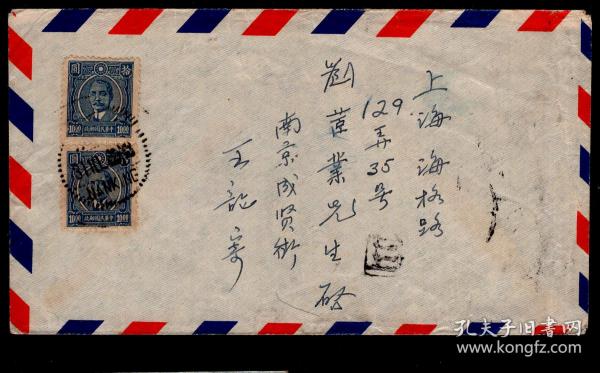 上海海格路
129弄35号
劉蓝業先生啓
南京成贤街
王記寄
圓拾
10.00 中華民國郵政 10.00
10.00 中華民國郵政 10.00
孔夫子旧书网
www.kongfz.com